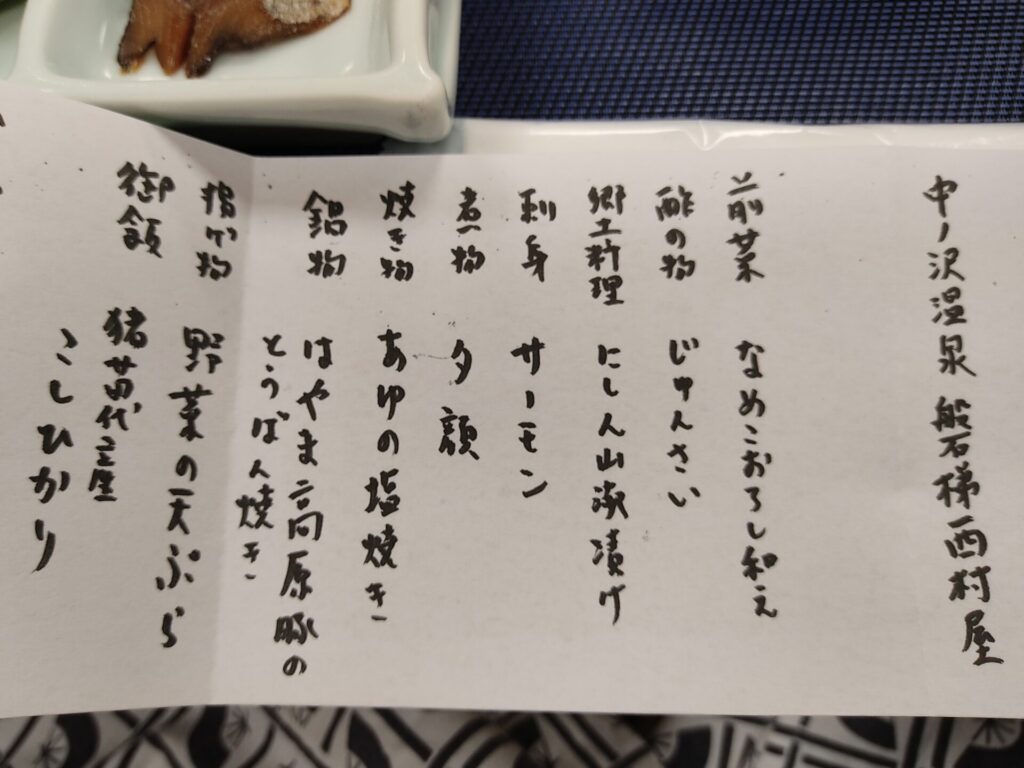 中ノ沢温泉 磐石梯西村屋
前菜 なめこおろし和え
酢の物 じゅんさい
郷土料理 にしん山漬け
刺身 サーモン
煮物 夕顔
焼き物 あゆの塩焼き
鍋物 はやま高原豚の
とうばん焼き
揚げ物 野菜の天ぷら
御飯 猪苗代産
こしひかり